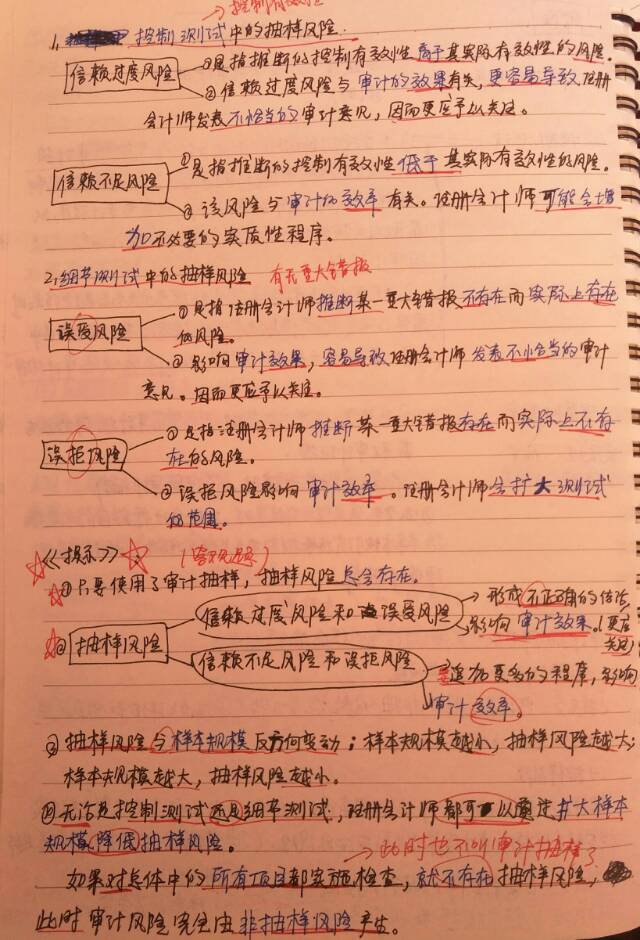 →控制有效性
1. 控制测试中的抽样风险.
信赖过度风险 ①是指推断的控制有效性高于其实际有效性的风险.
②信赖过度风险与审计的效果有关,更容易导致注册
会计师发表不恰当的审计意见,因而更应予以关注。
信赖不足风险 ①是指推断的控制有效性低于其实际有效性的风险.
②该风险与审计的效率有关。注册会计师可能会增
加不必要的实质性程序。
2.细节测试中的抽样风险 有无重大错报
误受风险 ①是指注册会计师推断某一重大错报不存在而实际上存在
的风险。
②影响审计效果,容易导致注册会计师发表不恰当的审计
意见。因而更应予以关注。
误拒风险 ①是指注册会计师推断某一重大错报存在而实际上不存
在的风险。
②误拒风险影响审计效率。注册会计师会扩大测试
的范围。
《提示》 (客观题)
①只要使用了审计抽样,抽样风险总会存在.
②抽样风险 信赖过度风险和误受风险 → 形成不正确的结论,
影响审计效果.(更应关注)
信赖不足风险和误拒风险 → 追加更多的程序,影响
审计效率。
③抽样风险与样本规模反方向变动;样本规模越小,抽样风险越大;
样本规模越大,抽样风险越小。
④无论是控制测试还是细节测试,注册会计师都可以通过扩大样本
规模降低抽样风险。
→此时也不叫审计抽样了
如果对总体中的所有项目都实施检查,就不存在抽样风险,
此时审计风险完全由非抽样风险产生。